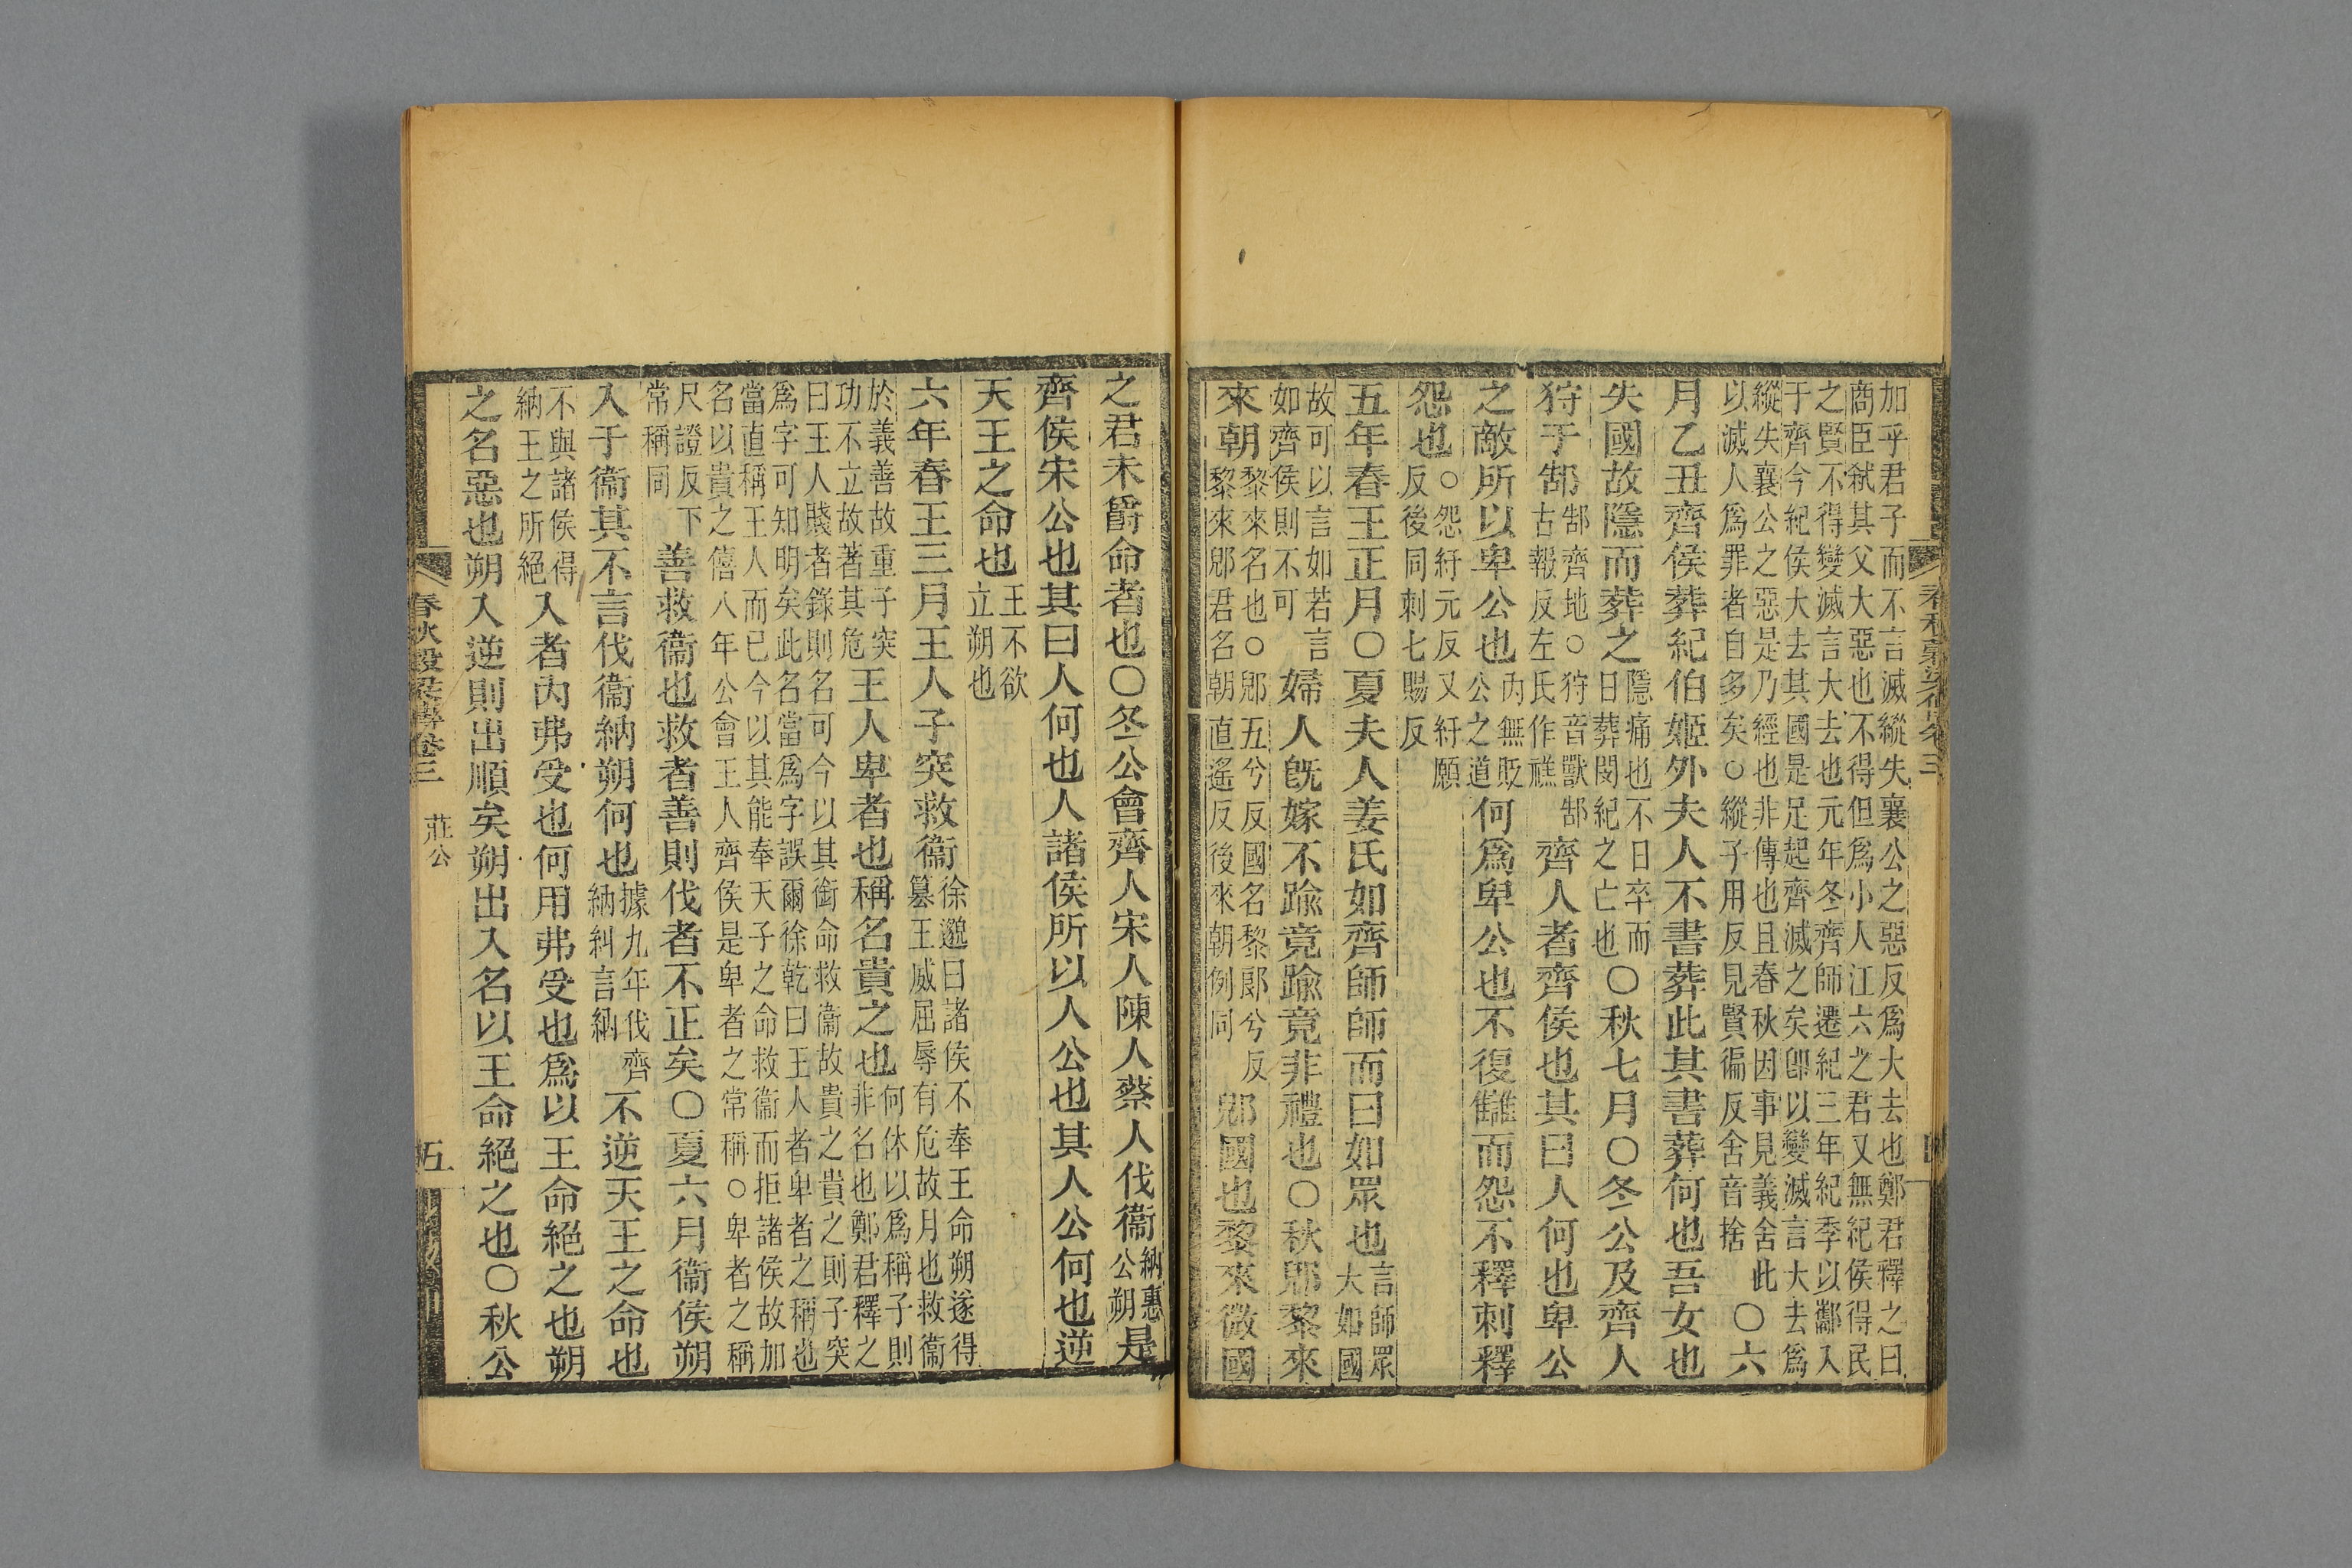 加乎君子而不言滅縱失襄公之惡反爲大去也鄭君釋之曰
商臣弒其父大惡也不得但爲小人江六之君又無紀侯得民
之賢不得變滅言大去也元年冬齊師遷紀三年紀季以酅入
于齊今紀侯大去其國是足起齊滅之矣卽以變滅言大去爲
縱失襄公之惡是乃經也非傳也且春秋因事見義舍此
以滅人爲罪者自多矣○縱子用反見賢徧反舍音捨
○六
月乙丑齊侯葬紀伯姬外夫人不書葬此其書葬何也吾女也
失國故隱而葬之
隱痛也不日卒而
日葬閔紀之亡也
○秋七月○冬公及齊人
狩于郜
郜齊地○狩音獸郜
古報反左氏作禚
齊人者齊侯也其曰人何也卑公
之敵所以卑公也
內無貶
公之道
何爲卑公也不復讎而怨不釋刺釋
怨也
○怨紆元反又紆願
反後同刺七賜反
五年春王正月○夏夫人姜氏如齊師師而曰如眾也
言師眾
大如國
故可以言如若言
如齊侯則不可
婦人旣嫁不踰竟踰竟非禮也○秋郳黎來
來朝
黎來名也○郳五兮反國名黎郎兮反
黎來郳君名朝直遙反後來朝例同
郳國也黎來微國
之君未爵命者也○冬公會齊人宋人陳人蔡人伐衞
納惠
公朔
是
齊侯宋公也其曰人何也人諸侯所以人公也其人公何也逆
天王之命也
王不欲
立朔也
六年春王三月王人子突救衞
徐邈曰諸侯不奉王命朔遂得
篡王威屈辱有危故月也救衞
於義善故重子突
功不立故著其危
王人卑者也稱名貴之也
何休以爲稱子則
非名也鄭君釋之
曰王人賤者錄則名可今以其銜命救衞故貴之貴之則子突
爲字可知明矣此名當爲字誤爾徐乾曰王人者卑者之稱也
當直稱王人而已今以其能奉天子之命救衞而拒諸侯故加
名以貴之僖八年公會王人齊侯是卑者之常稱○卑者之稱
尺證反下
常稱同
善救衞也救者善則伐者不正矣○夏六月衞侯朔
入于衞其不言伐衞納朔何也
據九年伐齊
納糾言納
不逆天王之命也
不與諸侯得
納王之所絕
入者內弗受也何用弗受也爲以王命絕之也朔
之名惡也朔入逆則出順矣朔出入名以王命絕之也○秋公
春秋穀梁傳卷三
莊公
五